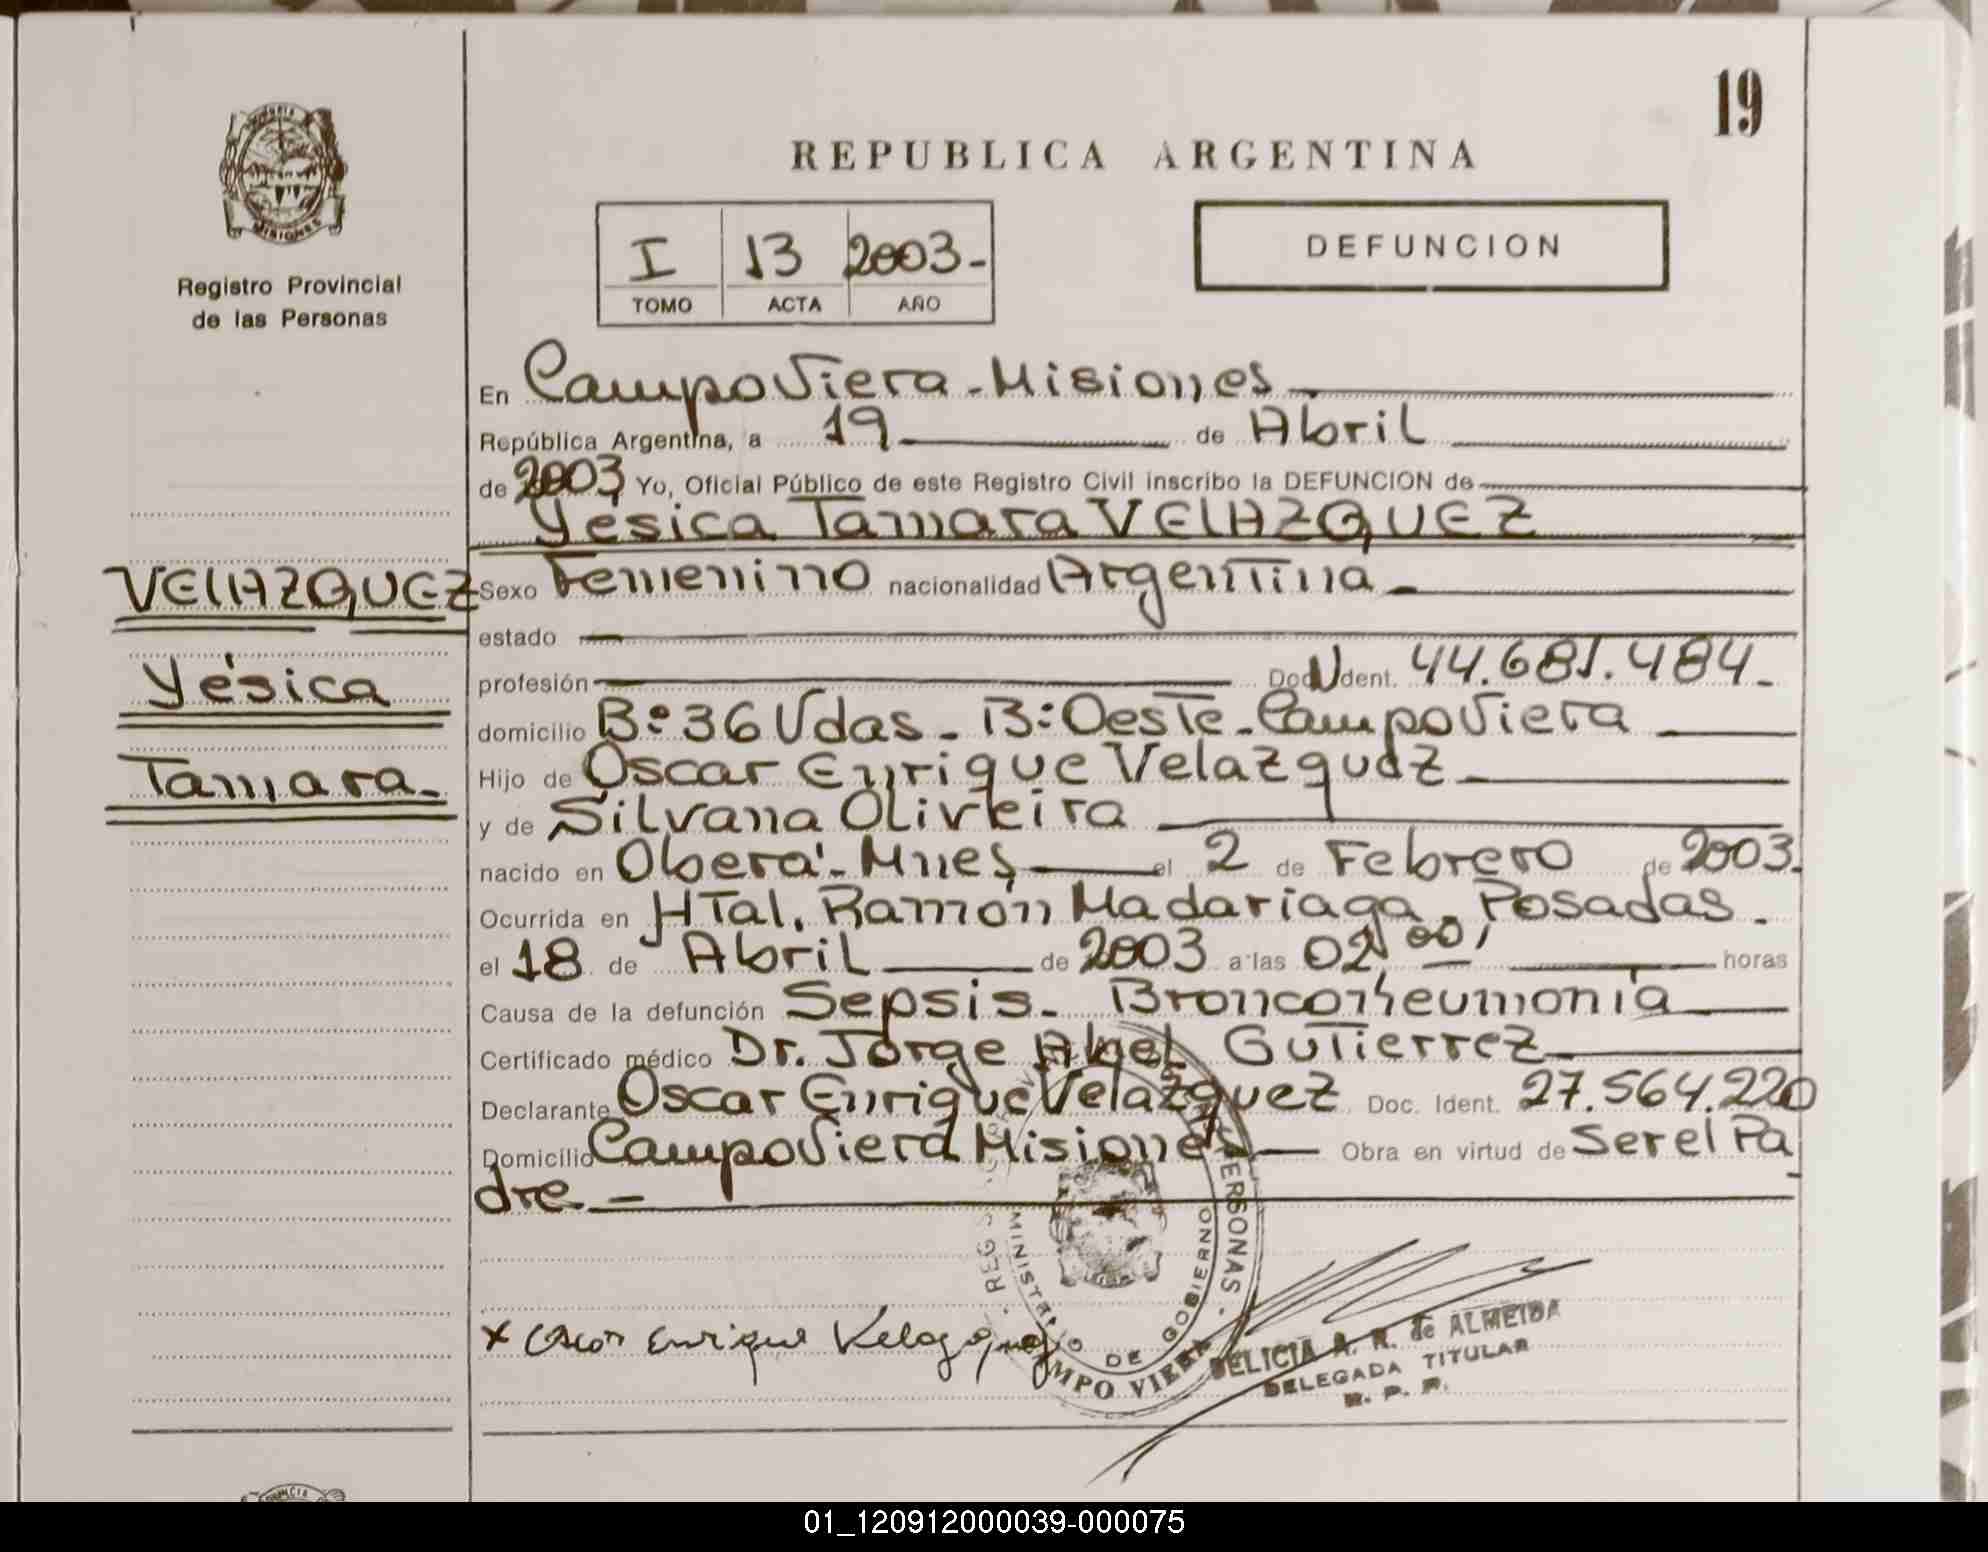 19
REPUBLICA ARGENTINA
MISIONES
Registro Provincial
de las Personas
I 13 2003-
TOMO ACTA AÑO
DEFUNCION
En Campo Viera - Misiones
República Argentina, a 19 de Abril
de 2003 Yo, Oficial Público de este Registro Civil inscribo la DEFUNCION de
Yésica Tamara VELAZQUEZ
VELAZQUEZ
Yésica
Tamara-
Sexo Femenino nacionalidad Argentina
estado
profesión Doc. Ident. 44.681.484-
domicilio B: 36 Vdas - B: Oeste - Campo Viera
Hijo de Oscar Enrique Velazquez
y de Silvana Oliveira
nacido en Oberá - Mnes el 2 de Febrero de 2003.
Ocurrida en HTal. Ramón Madariaga - Posadas.
el 18 de Abril de 2003 a las 02,00, horas
Causa de la defunción Sepsis - Bronconeumonía
Certificado médico Dr. Jorge Abel Gutierrez
Declarante Oscar Enrique Velazquez Doc. Ident. 27.564.220
Domicilio Campo Viera Misiones Obra en virtud de Ser el Pa
dre -
PERSONAS
MINISTERIO DE GOBIERNO
CAMPO VIERA
x Oscar Enrique Velazquez
DELICIA A. R. de ALMEIDA
DELEGADA TITULAR
R. P. P.
01_120912000039-000075